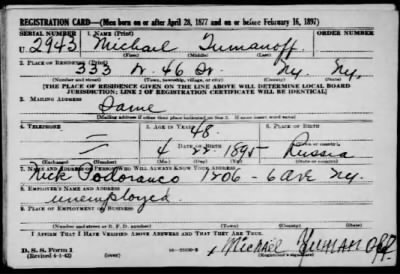 REGISTRATION CARD—(Men born on or after April 28, 1877 and on or before February 16, 1897)
SERIAL NUMBER 1. NAME (Print)
U. 2943 Michael Tumanoff
(First) (Middle) (Last)
2. PLACE OF RESIDENCE (Print)
333 W. 46 St. Ny. Ny.
(Number and street) (Town, township, village, or city) (County) (State)
[THE PLACE OF RESIDENCE GIVEN ON THE LINE ABOVE WILL DETERMINE LOCAL BOARD
JURISDICTION; LINE 2 OF REGISTRATION CERTIFICATE WILL BE IDENTICAL]
3. MAILING ADDRESS
Same
[Mailing address if other than place indicated on line 2. If same insert word same]
4. TELEPHONE 5. AGE IN YEARS 6. PLACE OF BIRTH
48
DATE OF BIRTH
4 22 1895 Russia
(Exchange) (Number) (Mo.) (Day) (Yr.) (State or country)
7. NAME AND ADDRESS OF PERSON WHO WILL ALWAYS KNOW YOUR ADDRESS
1206 - 6 Ave Ny.
8. EMPLOYER'S NAME AND ADDRESS
unemployed
9. PLACE OF EMPLOYMENT OR BUSINESS
(Number and street or R. F. D. number) (Town) (County) (State)
I AFFIRM THAT I HAVE VERIFIED ABOVE ANSWERS AND THAT THEY ARE TRUE.
D. S. S. Form 1
(Revised 4-1-42) (over) Michael Tumanoff